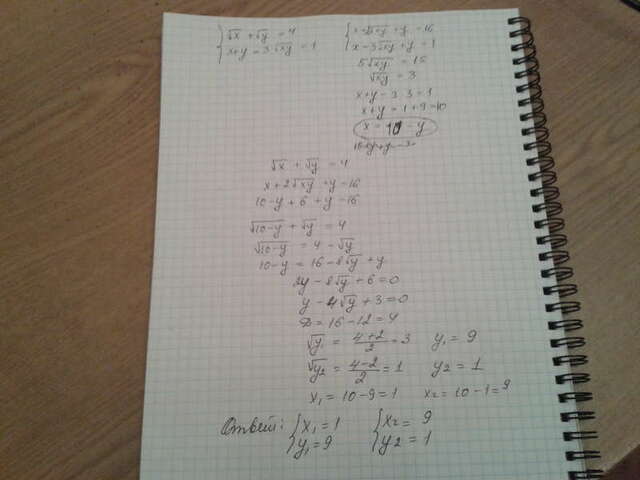 {√x + √y = 4
x+y = 3√xy = 1
{x+2√xy+y=16
x-3√xy+y=1
5√xy = 15
√xy = 3
x+y-3·3=1
x+y=1+9=10
x=10-y
√x + √y = 4
x+2√xy+y=16
10-y+6+y=16
√10-y + √y = 4
√10-y = 4-√y
10-y = 16-8√y+y
2y-8√y+6=0
y-4√y+3=0
D=16-12=4
√y₁ = (4+2)/2 = 3 y₁ = 9
√y₂ = (4-2)/2 = 1 y₂ = 1
x₁ = 10-9=1 x₂ = 10-1=9
Ответ: {x₁=1 {x₂=9
y₁=9 y₂=1